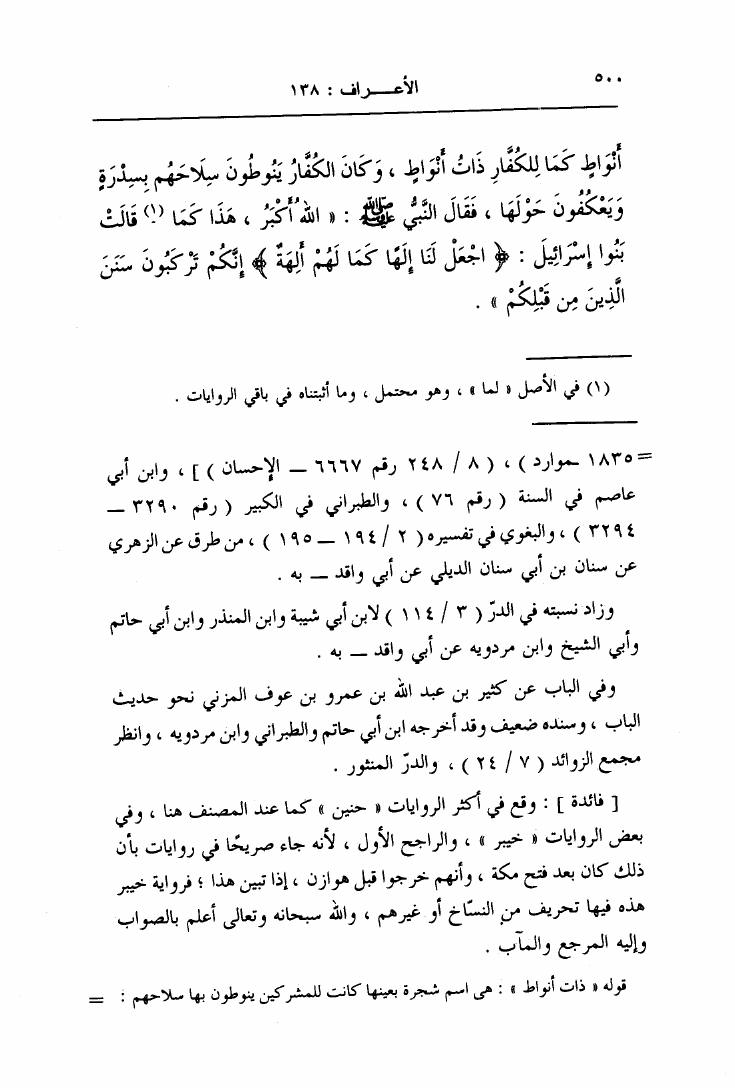 ٥٠٠
الأعـــراف : ١٣٨
أَنْوَاطٍ كَمَا لِلكُفَّارِ ذَاتُ أَنْوَاطٍ ، وَكَانَ الكُفَّارُ يَنُوطُونَ سِلَاحَهُم بِسِدْرَةٍ
وَيَعْكُفُونَ حَوْلَهَا ، فَقَالَ النَّبِيُّ ﷺ : « اللهُ أَكْبَرُ ، هَذَا كَمَا (١) قَالَتْ
بَنُوا إِسْرَائِيلَ : ﴿ اجْعَلْ لَنَا إِلَهًا كَمَا لَهُمْ أَلِهَةٌ ﴾ إِنَّكُمْ تَرْكَبُونَ سَنَنَ
الَّذِينَ مِن قَبْلِكُمْ » .
(١) في الأصل « لما » ، وهو محتمل ، وما أثبتناه في باقي الروايات .
= ١٨٣٥ ـموارد ) ، ( ٨ / ٢٤٨ رقم ٦٦٦٧ ــ الإحسان ) ] ، وابن أبي
عاصم في السنة ( رقم ٧٦ ) ، والطبراني في الكبير ( رقم ٣٢٩٠ ــ
٣٢٩٤ ) ، والبغوي في تفسيره ( ٢ / ١٩٤ ــ ١٩٥ ) ، من طرق عن الزهري
عن سنان بن أبي سنان الديلي عن أبي واقد ــ به .
وزاد نسبته في الدرّ ( ٣ / ١١٤ ) لابن أبي شيبة وابن المنذر وابن أبي حاتم
وأبي الشيخ وابن مردويه عن أبي واقد ــ به .
وفي الباب عن كثير بن عبد الله بن عمرو بن عوف المزني نحو حديث
الباب ، وسنده ضعيف وقد أخرجه ابن أبي حاتم والطبراني وابن مردويه ، وانظر
مجمع الزوائد ( ٧ / ٢٤ ) ، والدرّ المنثور .
[ فائدة ] : وقع في أكثر الروايات « حنين » كما عند المصنف هنا ، وفي
بعض الروايات « خيبر » ، والراجح الأول ، لأنه جاء صريحًا في روايات بأن
ذلك كان بعد فتح مكة ، وأنهم خرجوا قبل هوازن ، إذا تبين هذا ؛ فرواية خيبر
هذه فيها تحريف من النسّاخ أو غيرهم ، والله سبحانه وتعالى أعلم بالصواب
وإليه المرجع والمآب .
قوله « ذات أنواط » : هى اسم شجرة بعينها كانت للمشركين ينوطون بها سلاحهم : =